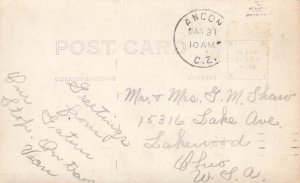 ANCON
JAN 31
10 AM
C.Z.
POST CARD
CORRESPONDENCE
ADDRESS
Greetings
from
Gatun
Our
Stop. On the
Mr. & Mrs. G. M. Shaw
15316 Lake Ave
Lakewood
Ohio
U.S.A.